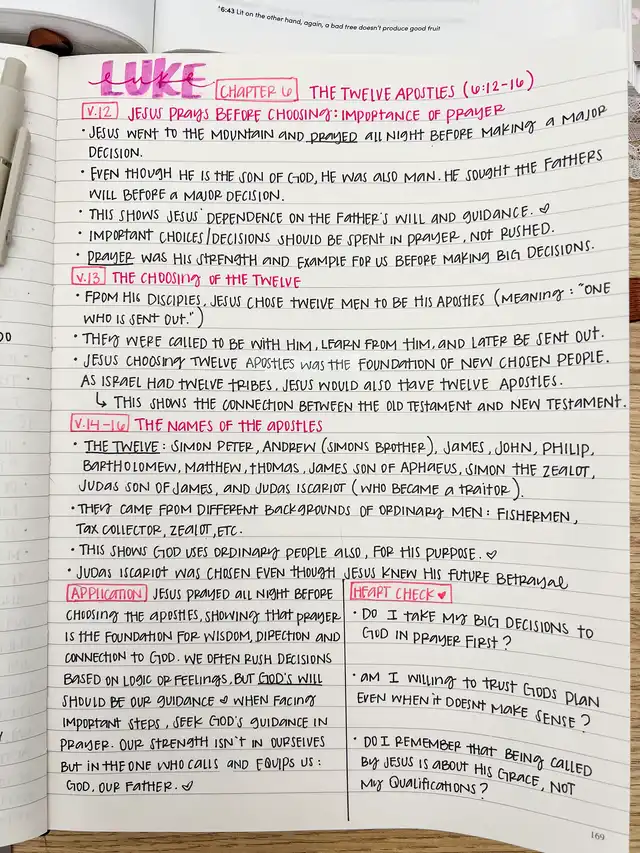 6:43 Lit on the other hand, again, a bad tree doesn't produce good fruit
LUKE
Luke
CHAPTER 6
THE TWELVE APOSTLES (6:12-16)
V.12 JESUS PRAYS BEFORE CHOOSING: IMPORTANCE OF PRAYER
• JESUS WENT TO THE MOUNTAIN AND PRAYED ALL NIGHT BEFORE MAKING A MAJOR
DECISION.
• EVEN THOUGH HE IS THE SON OF GOD, HE WAS ALSO MAN. HE SOUGHT THE FATHERS
WILL BEFORE A MAJOR DECISION.
• THIS SHOWS JESUS' DEPENDENCE ON THE FATHER'S WILL AND GUIDANCE. ♡
• IMPORTANT CHOICES/DECISIONS SHOULD BE SPENT IN PRAYER, NOT RUSHED.
• PRAYER WAS HIS STRENGTH AND EXAMPLE FOR US BEFORE MAKING BIG DECISIONS.
V.13 THE CHOOSING OF THE TWELVE
• FROM HIS DISCIPLES, JESUS CHOSE TWELVE MEN TO BE HIS APOSTLES (MEANING: "ONE
WHO IS SENT OUT.")
• THEY WERE CALLED TO BE WITH HIM, LEARN FROM HIM, AND LATER BE SENT OUT.
• JESUS CHOOSING TWELVE APOSTLES WAS THE FOUNDATION OF NEW CHOSEN PEOPLE.
AS ISRAEL HAD TWELVE TRIBES, JESUS WOULD ALSO HAVE TWELVE APOSTLES.
↳ THIS SHOWS THE CONNECTION BETWEEN THE OLD TESTAMENT AND NEW TESTAMENT.
V.14-16 THE NAMES OF THE APOSTLES
• THE TWELVE: SIMON PETER, ANDREW (SIMONS BROTHER), JAMES, JOHN, PHILIP,
BARTHOLOMEW, MATTHEW, THOMAS, JAMES SON OF APHAEUS, SIMON THE ZEALOT,
JUDAS SON OF JAMES, AND JUDAS ISCARIOT (WHO BECAME A TRAITOR).
• THEY CAME FROM DIFFERENT BACKGROUNDS OF ORDINARY MEN: FISHERMEN,
TAX COLLECTOR, ZEALOT, ETC.
• THIS SHOWS GOD USES ORDINARY PEOPLE ALSO, FOR HIS PURPOSE. ♡
• JUDAS ISCARIOT WAS CHOSEN EVEN THOUGH JESUS KNEW HIS FUTURE BETRAYAL
APPLICATION JESUS PRAYED ALL NIGHT BEFORE
CHOOSING THE APOSTLES, SHOWING THAT PRAYER
IS THE FOUNDATION FOR WISDOM, DIRECTION AND
CONNECTION TO GOD. WE OFTEN RUSH DECISIONS
BASED ON LOGIC OR FEELINGS, BUT GOD'S WILL
SHOULD BE OUR GUIDANCE ♡ WHEN FACING
IMPORTANT STEPS, SEEK GOD'S GUIDANCE IN
PRAYER. OUR STRENGTH ISN'T IN OURSELVES
BUT IN THE ONE WHO CALLS AND EQUIPS US:
GOD, OUR FATHER. ♡
HEART CHECK ♥
• DO I TAKE MY BIG DECISIONS TO
GOD IN PRAYER FIRST?
• AM I WILLING TO TRUST GODS PLAN
EVEN WHEN IT DOESNT MAKE SENSE?
• DO I REMEMBER THAT BEING CALLED
BY JESUS IS ABOUT HIS GRACE, NOT
MY QUALIFICATIONS?
169